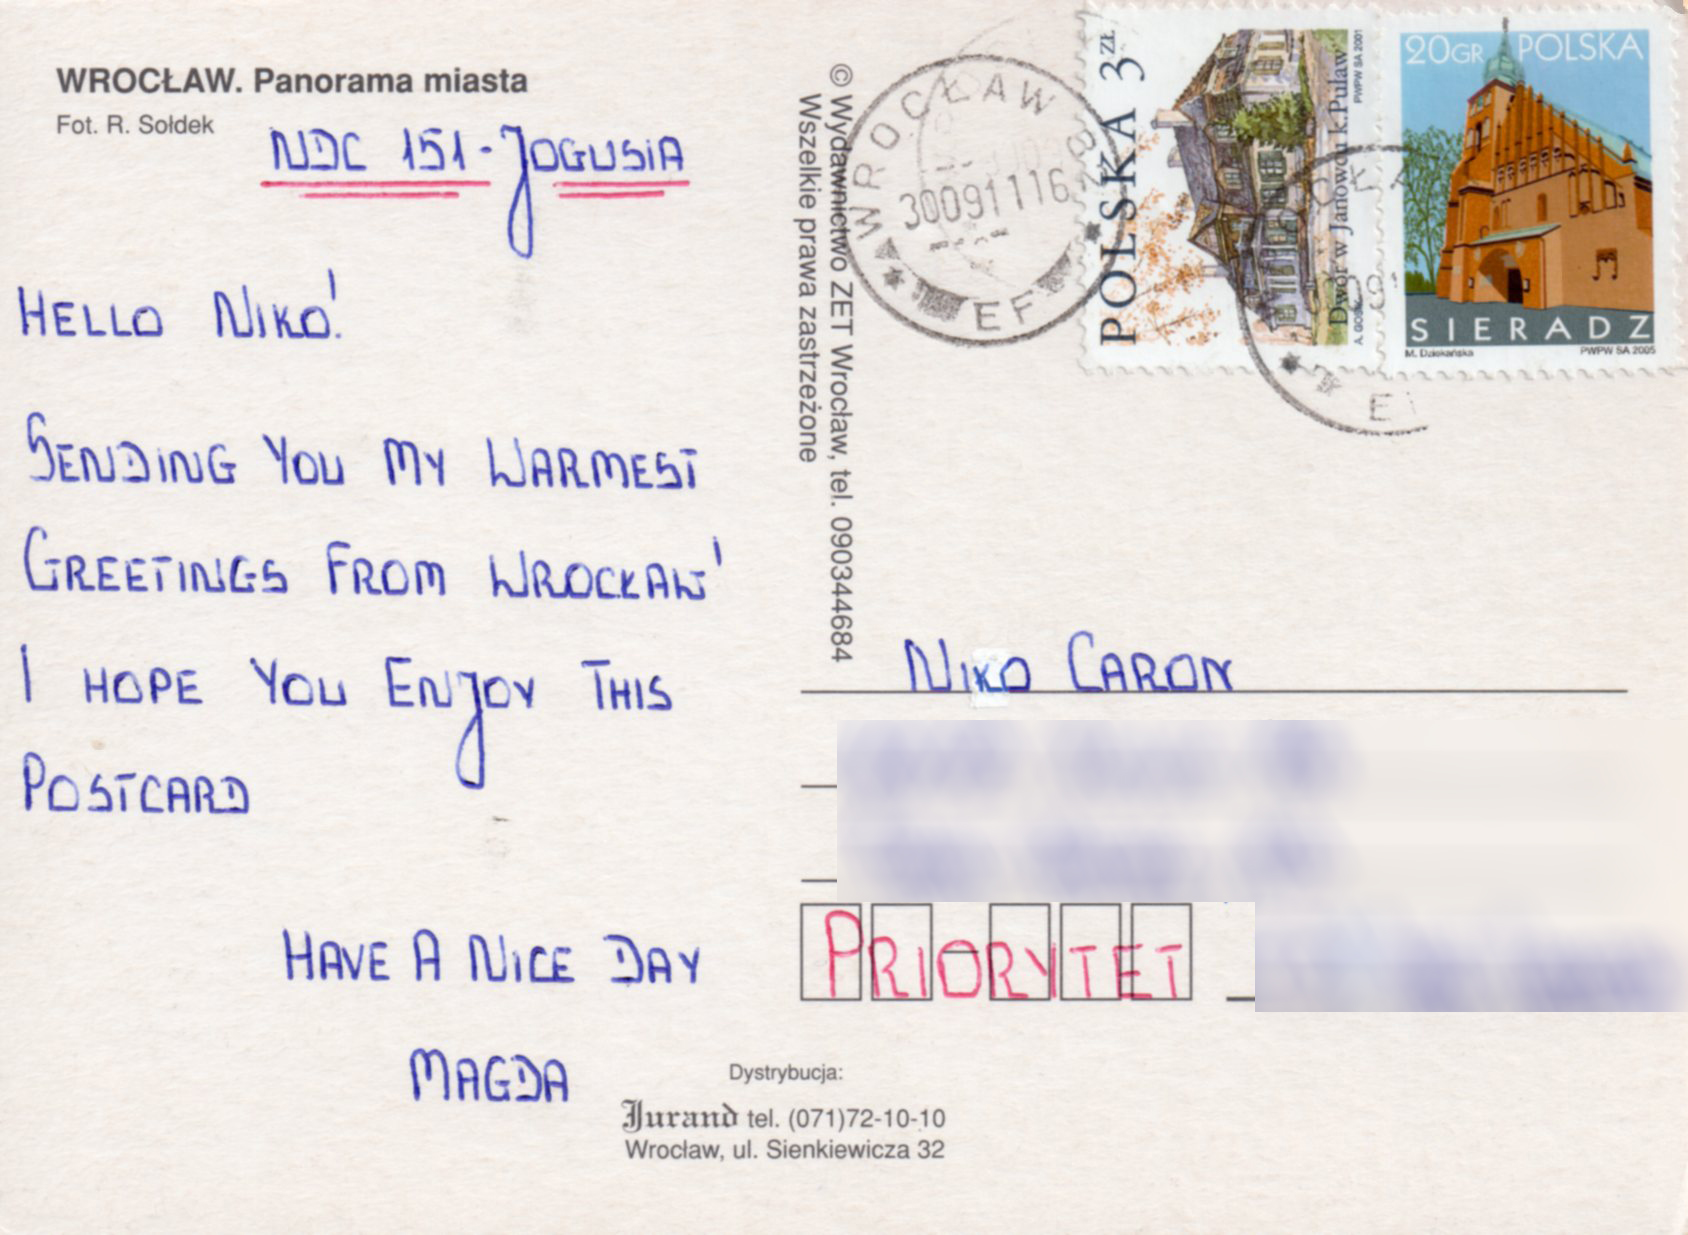 WROCŁAW. Panorama miasta
Fot. R. Sołdek
NDC 151 - JOGUSIA
HELLO NIKO!
SENDING YOU MY WARMEST
GREETINGS FROM WROCŁAW!
I HOPE YOU ENJOY THIS
POSTCARD
HAVE A NICE DAY
MAGDA
© Wydawnictwo ZET Wrocław, tel. 090344684
Wszelkie prawa zastrzeżone
WROCŁAW
30091116
EF
POLSKA 3ZŁ
Dwór w Janowcu k.Puław
PWPW SA 2001
20GR POLSKA
SIERADZ
M. Dziekańska PWPW SA 2005
NIKO CARON
PRIORYTET
Dystrybucja:
Jurand tel. (071)72-10-10
Wrocław, ul. Sienkiewicza 32